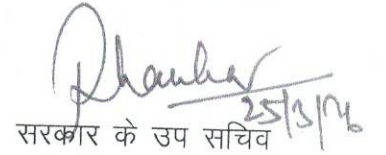 25/3/26
सरकार के उप सचिव